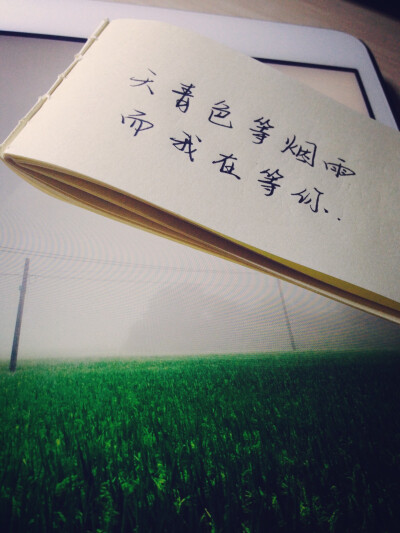 天青色等烟雨
而我在等你.